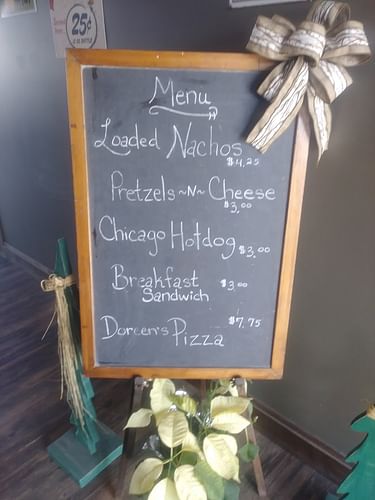 25¢
Menu
Loaded Nachos
$4.25
Pretzels ~N~ Cheese
$3.00
Chicago Hotdog $3.00
Breakfast $3.00
Sandwich
Doreen's Pizza $7.75